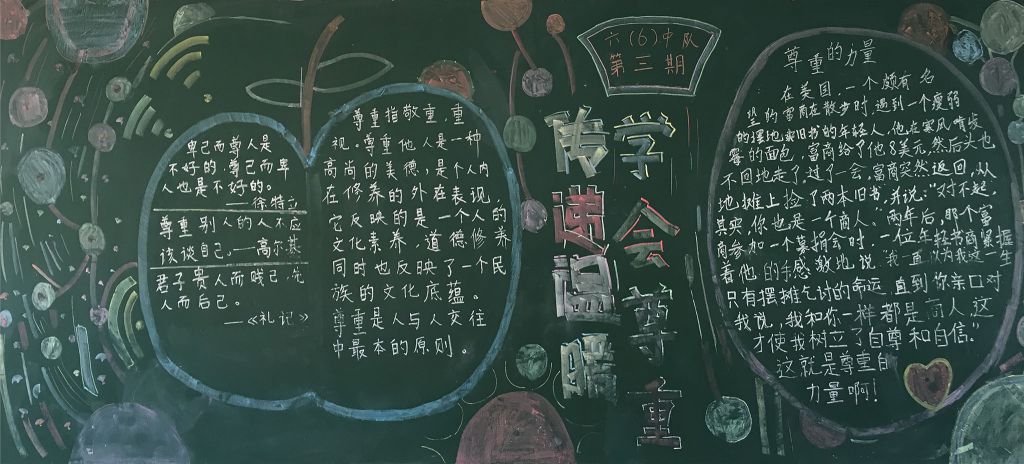 卑己而高人是
不好的尊己而卑
人也是不好的。
——徐特立
尊重别人的人不应
该谈自己。——高尔基
君子贵人而贱己先
人而后己。
——《礼记》
尊重指敬重，重
视。尊重他人是一种
高尚的美德，是个人内
在修养的外在表现，
它反映的是一个人的
文化素养，道德修养
同时也反映了一个民
族的文化底蕴。
尊重是人与人交往
中最本的原则。
六(6)中队
第三期
学会尊重
传递温暖
尊重的力量
在美国，一个颇有名
望的富商在散步时，遇到一个瘦弱
的摆地卖旧书的年轻人，他在寒风啃发
霉的面包，富商给了他8美元，然后头也
不回地走了。过了一会，富商突然返回，从
地摊上捡了两本旧书，并说："对不起，
其实，你也是一个商人。"两年后，那个富
商参加一个募捐会时，一位年轻书商紧握
着他的手感激地说我一直以为我这一生
只有摆摊乞讨的命运直到你亲口对
我说，我和你一样都是商人这
才使我树立了自尊和自信。"
这就是尊重的
力量啊！